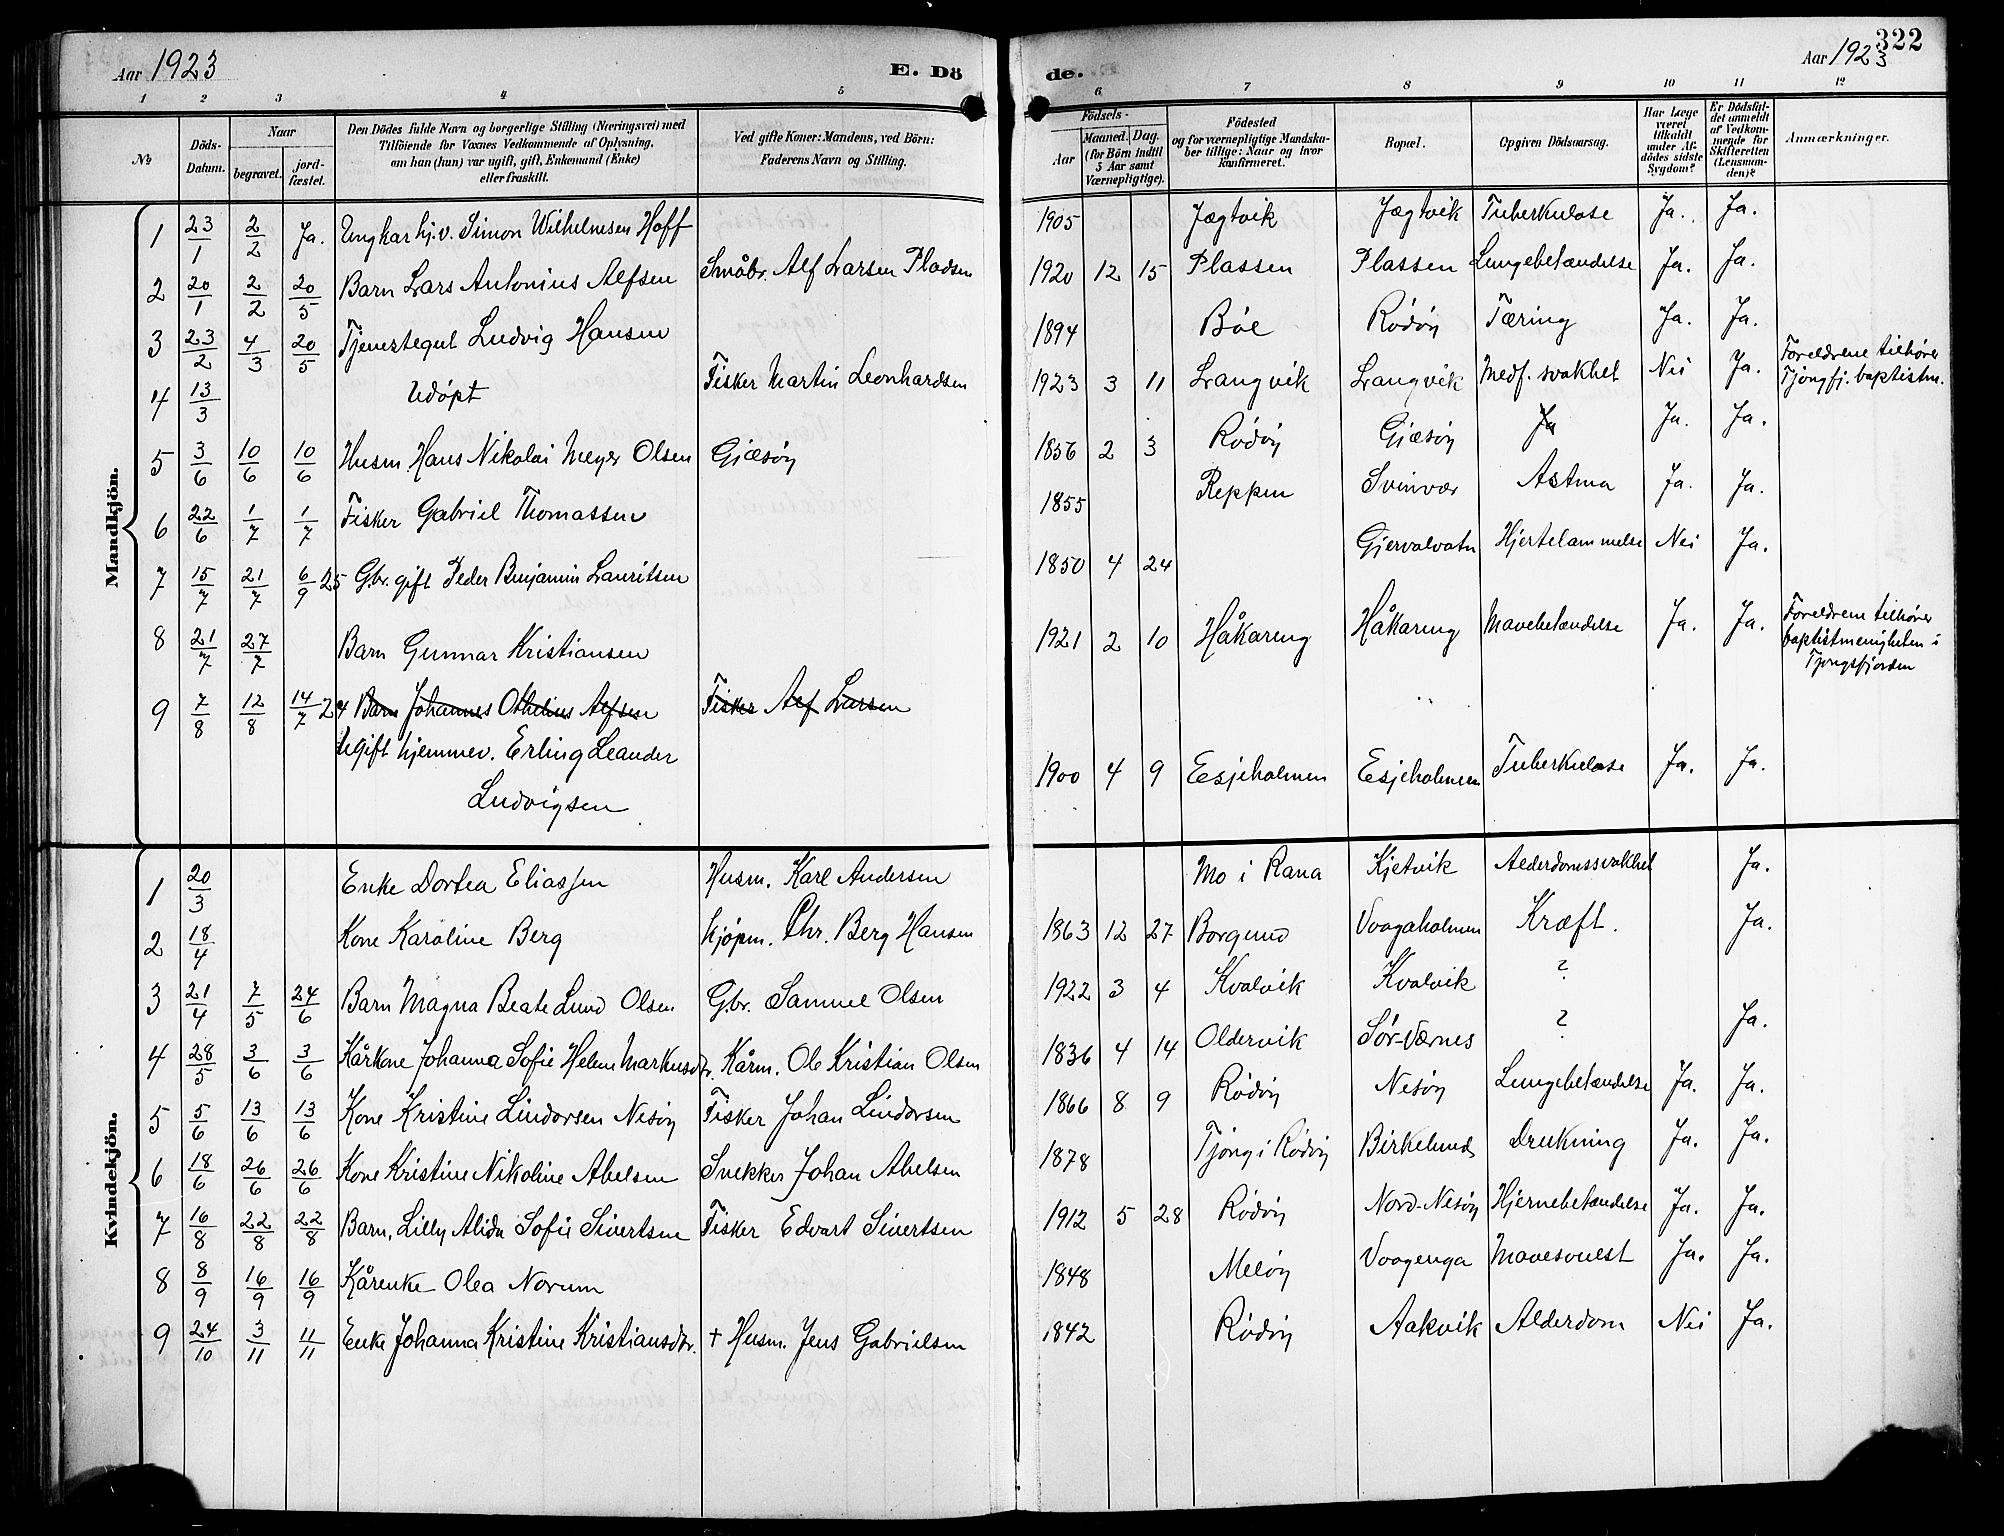 322
Aar 1923 E. Dö de. Aar 1923
1 2 3 4 5 6 7 8 9 10 11 12
No
Döds-Datum.
Naar
begravet.
jord-fæstet.
Den Dödes fulde Navn og borgerlige Stilling (Næringsvei) med
Tilföiende for Voxnes Vedkommende af Oplysning,
om han (hun) var ugift, gift, Enkemand (Enke)
eller fraskilt.
Ved gifte Koner: Mandens, ved Börn:
Faderens Navn og Stilling.
Födsels-
Aar
Maaned. Dag.
(for Börn indtil
5 Aar samt
Værnepligtige).
Födested
og for værnepligtige Mandska-
ber tillige: Naar og hvor
konfirmeret.
Bopæl.
Opgiven Dödsaarsag.
Har Læge
været
tilkaldt
under Af-
dödes sidste
Sygdom?
Er Dödsfal-
det anmeldt
af Vedkom-
mende for
Skifteretten
(Lensman-
den)?
Anmærkninger.
Mandkjön.
1 23/1 2/2 Ja. Ungkar hj.v. Simon Wilhelmsen Hoff 1905 Jægtvik Jægtvik Tuberkulose Ja. Ja.
2 20/1 2/2 20/5 Barn Lars Antonius Alfsen Småbr. Alf Larsen Pladsen 1920 12 15 Plassen Plassen Lungebetændelse Ja. Ja.
3 23/2 4/3 20/5 Tjenestegut Ludvig Hansen 1894 Böe Rödöy Tæring Ja. Ja.
4 13/3 Udöpt Fisker Martin Leonhardsen 1923 3 11 Langvik Langvik Medf. svakhet Nei Ja. Foreldrene tilhører
Tjongfj. baptistm.
5 3/6 10/6 10/6 Husm. Hans Nikolai Meyer Olsen Gjæsöy 1856 2 3 Rödöy Gjæsöy Ja Ja. Ja.
6 22/6 1/7 1/7 Fisker Gabriel Thomassen 1855 Reppen Svinvær Astma Ja. Ja.
7 15/7 21/7 6/9 25 Gbr. gift Peder Benjamin Lauritsen 1850 4 24 Gjervalvatn Hjertelammelse Nei Ja.
8 21/7 27/7 Barn Gunnar Kristiansen 1921 2 10 Håkaring Håkaring Mavebetændelse Ja. Ja. Foreldrene tilhører
baptistmenigheten i
Tjongsfjorden
9 7/8 12/8 14/7 24 Barn Johannes Othelius Alfsen Fisker Alf Larsen
Ugift hjemmev. Erling Leander
Ludvigsen 1900 4 9 Esjeholmen Esjeholmen Tuberkulose Ja. Ja.
Kvindekjön.
1 20/3 Enke Dortea Eliassen Husm. Karl Andersen Mo i Rana Kjetvik Alderdomssvakhet Ja.
2 18/4 Kone Karoline Berg Kjöpm. Chr. Berg Hansen 1863 12 27 Borgund Vaagaholmen Kræft. Ja.
3 21/4 7/5 24/6 Barn Magna Beate Lund Olsen Gbr. Samuel Olsen 1922 3 4 Kvalvik Kvalvik ?
4 28/5 3/6 3/6 Kårkone Johanna Sofie Helene Markusdtr. Kårm. Ole Kristian Olsen 1836 4 14 Oldervik Sör-Værnes ? Ja.
5 5/6 13/6 13/6 Kone Kristine Lindorsen Nesöy Fisker Johan Lindorsen 1866 8 9 Rödöy Nesöy Lungebetændelse Ja. Ja.
6 18/6 26/6 26/6 Kone Kristine Nikoline Abelsen Snekker Johan Abelsen 1878 Tjong i Rödöy Birkelund Drukning Ja. Ja.
7 16/8 22/8 22/8 Barn, Lilly Alida Sofie Sivertsen Fisker Edvart Sivertsen 1912 5 28 Rödöy Nord-Nesöy Hjernebetændelse Ja. Ja.
8 8/9 16/9 16/9 Kårenke Olea Norum 1848 Melöy Vaagenga Mavesvulst Ja. Ja.
9 24/10 3/11 11/11 Enke Johanna Kristine Kristiansdtr. + Husm. Jens Gabrielsen 1842 Rödöy Aakvik Alderdom Nei Ja.